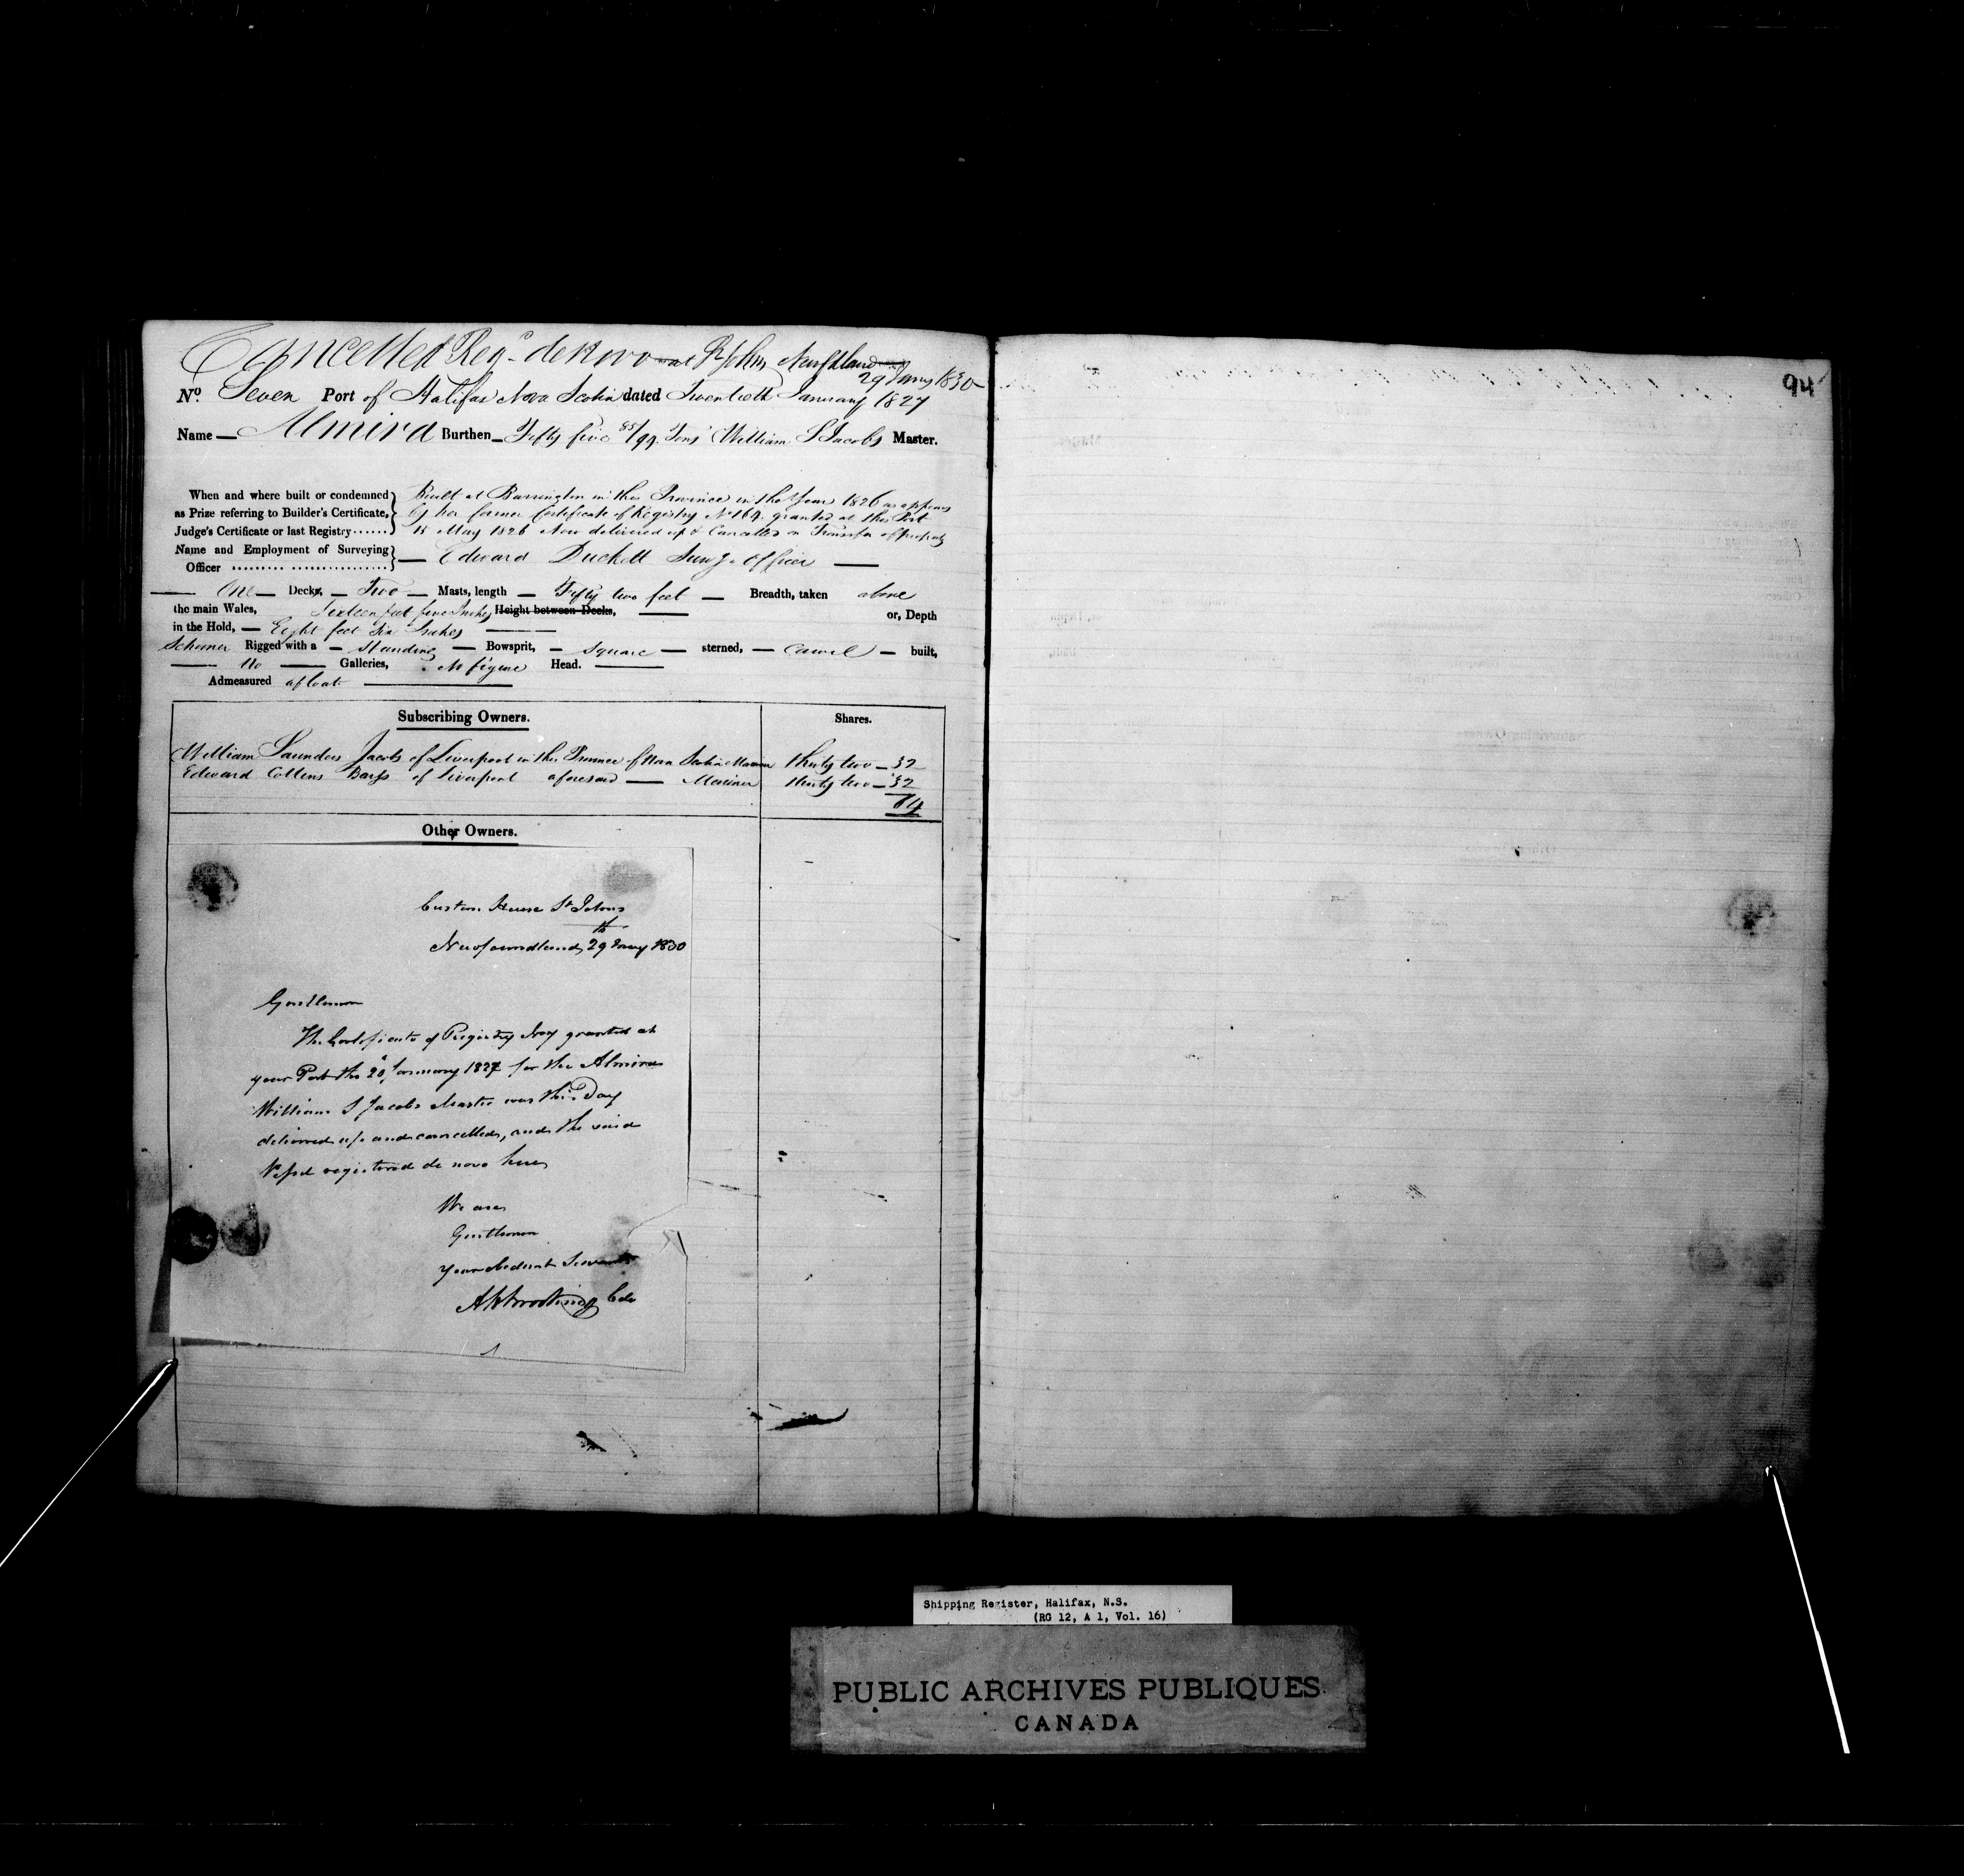 Cancelled Reg.d de novo at St Johns Newfdland
29 Jany 1830
No. Seven Port of Halifax Nova Scotia dated Twentieth January 1827
Name — Almira Burthen — Fifty five 85/94 Tons William S Jacobs Master.
When and where built or condemned as Prize referring to Builder's Certificate, Judge's Certificate or last Registry
Built at Barrington in this Province in the Year 1826 as appears
by her former Certificate of Registry No 164 granted at this Port
May 1826 Now delivered up & Cancelled on Transfer of property
Name and Employment of Surveying Officer — Edward Duckett Survg. Officer —
— One — Decks, — Two — Masts, length — Fifty two feet — Breadth, taken above
the main Wales, Sixteen feet five Inches Height between Decks, — or, Depth
in the Hold, — Eight feet Six Inches —
Schooner Rigged with a — Standing — Bowsprit, — Square — sterned, — Carvel — built,
— No — Galleries, No figure Head. —
Admeasured afloat —
Subscribing Owners. Shares.
William Saunders Jacobs of Liverpool in this Province of Nova Scotia Mariner thirty two — 32
Edward Collins Barss of Liverpool aforesaid — Mariner thirty two — 32
64
Other Owners.
Custom House St Johns
Newfoundland, 29th Jany 1830
Gentlemen
The Certificate of Registry No 7 granted at
your Port the 20th January 1827 for the Almira
William S Jacobs Master was this Day
delivered up and cancelled, and the said
Vessel registered de novo here
We are
Gentlemen
your obedient Servants
94
Shipping Register, Halifax, N.S.
(RG 12, A 1, Vol. 16)
PUBLIC ARCHIVES PUBLIQUES
CANADA